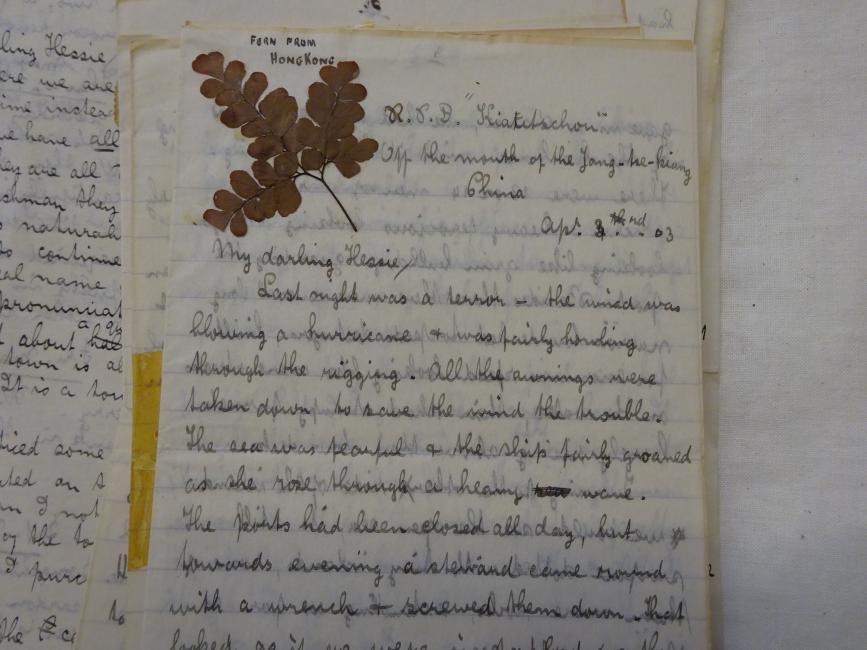 FERN FROM
HONGKONG
R.P.D. "Kiautschou"
Off the mouth of the Yang-tse-kiang
China
Apr. 3rd. 03
My darling Hessie,
Last night was a terror – the wind was
blowing a hurricane & was fairly howling
through the rigging. All the awnings were
taken down to save the wind the trouble.
The sea was fearful & the ship fairly groaned
as she rose through a heavy sea wave.
The ports had been closed all day, but
towards evening a steward came round
with a wrench & screwed them down. That
looked as if we were in for
ling Hessie
ere we are
ime instea
we have all
hey are all
shman they
s natural
to continue
eal name
pronunciat
t about
town is al
It is a tow
ticed some
ated on
n I not
by the to
I purc
the